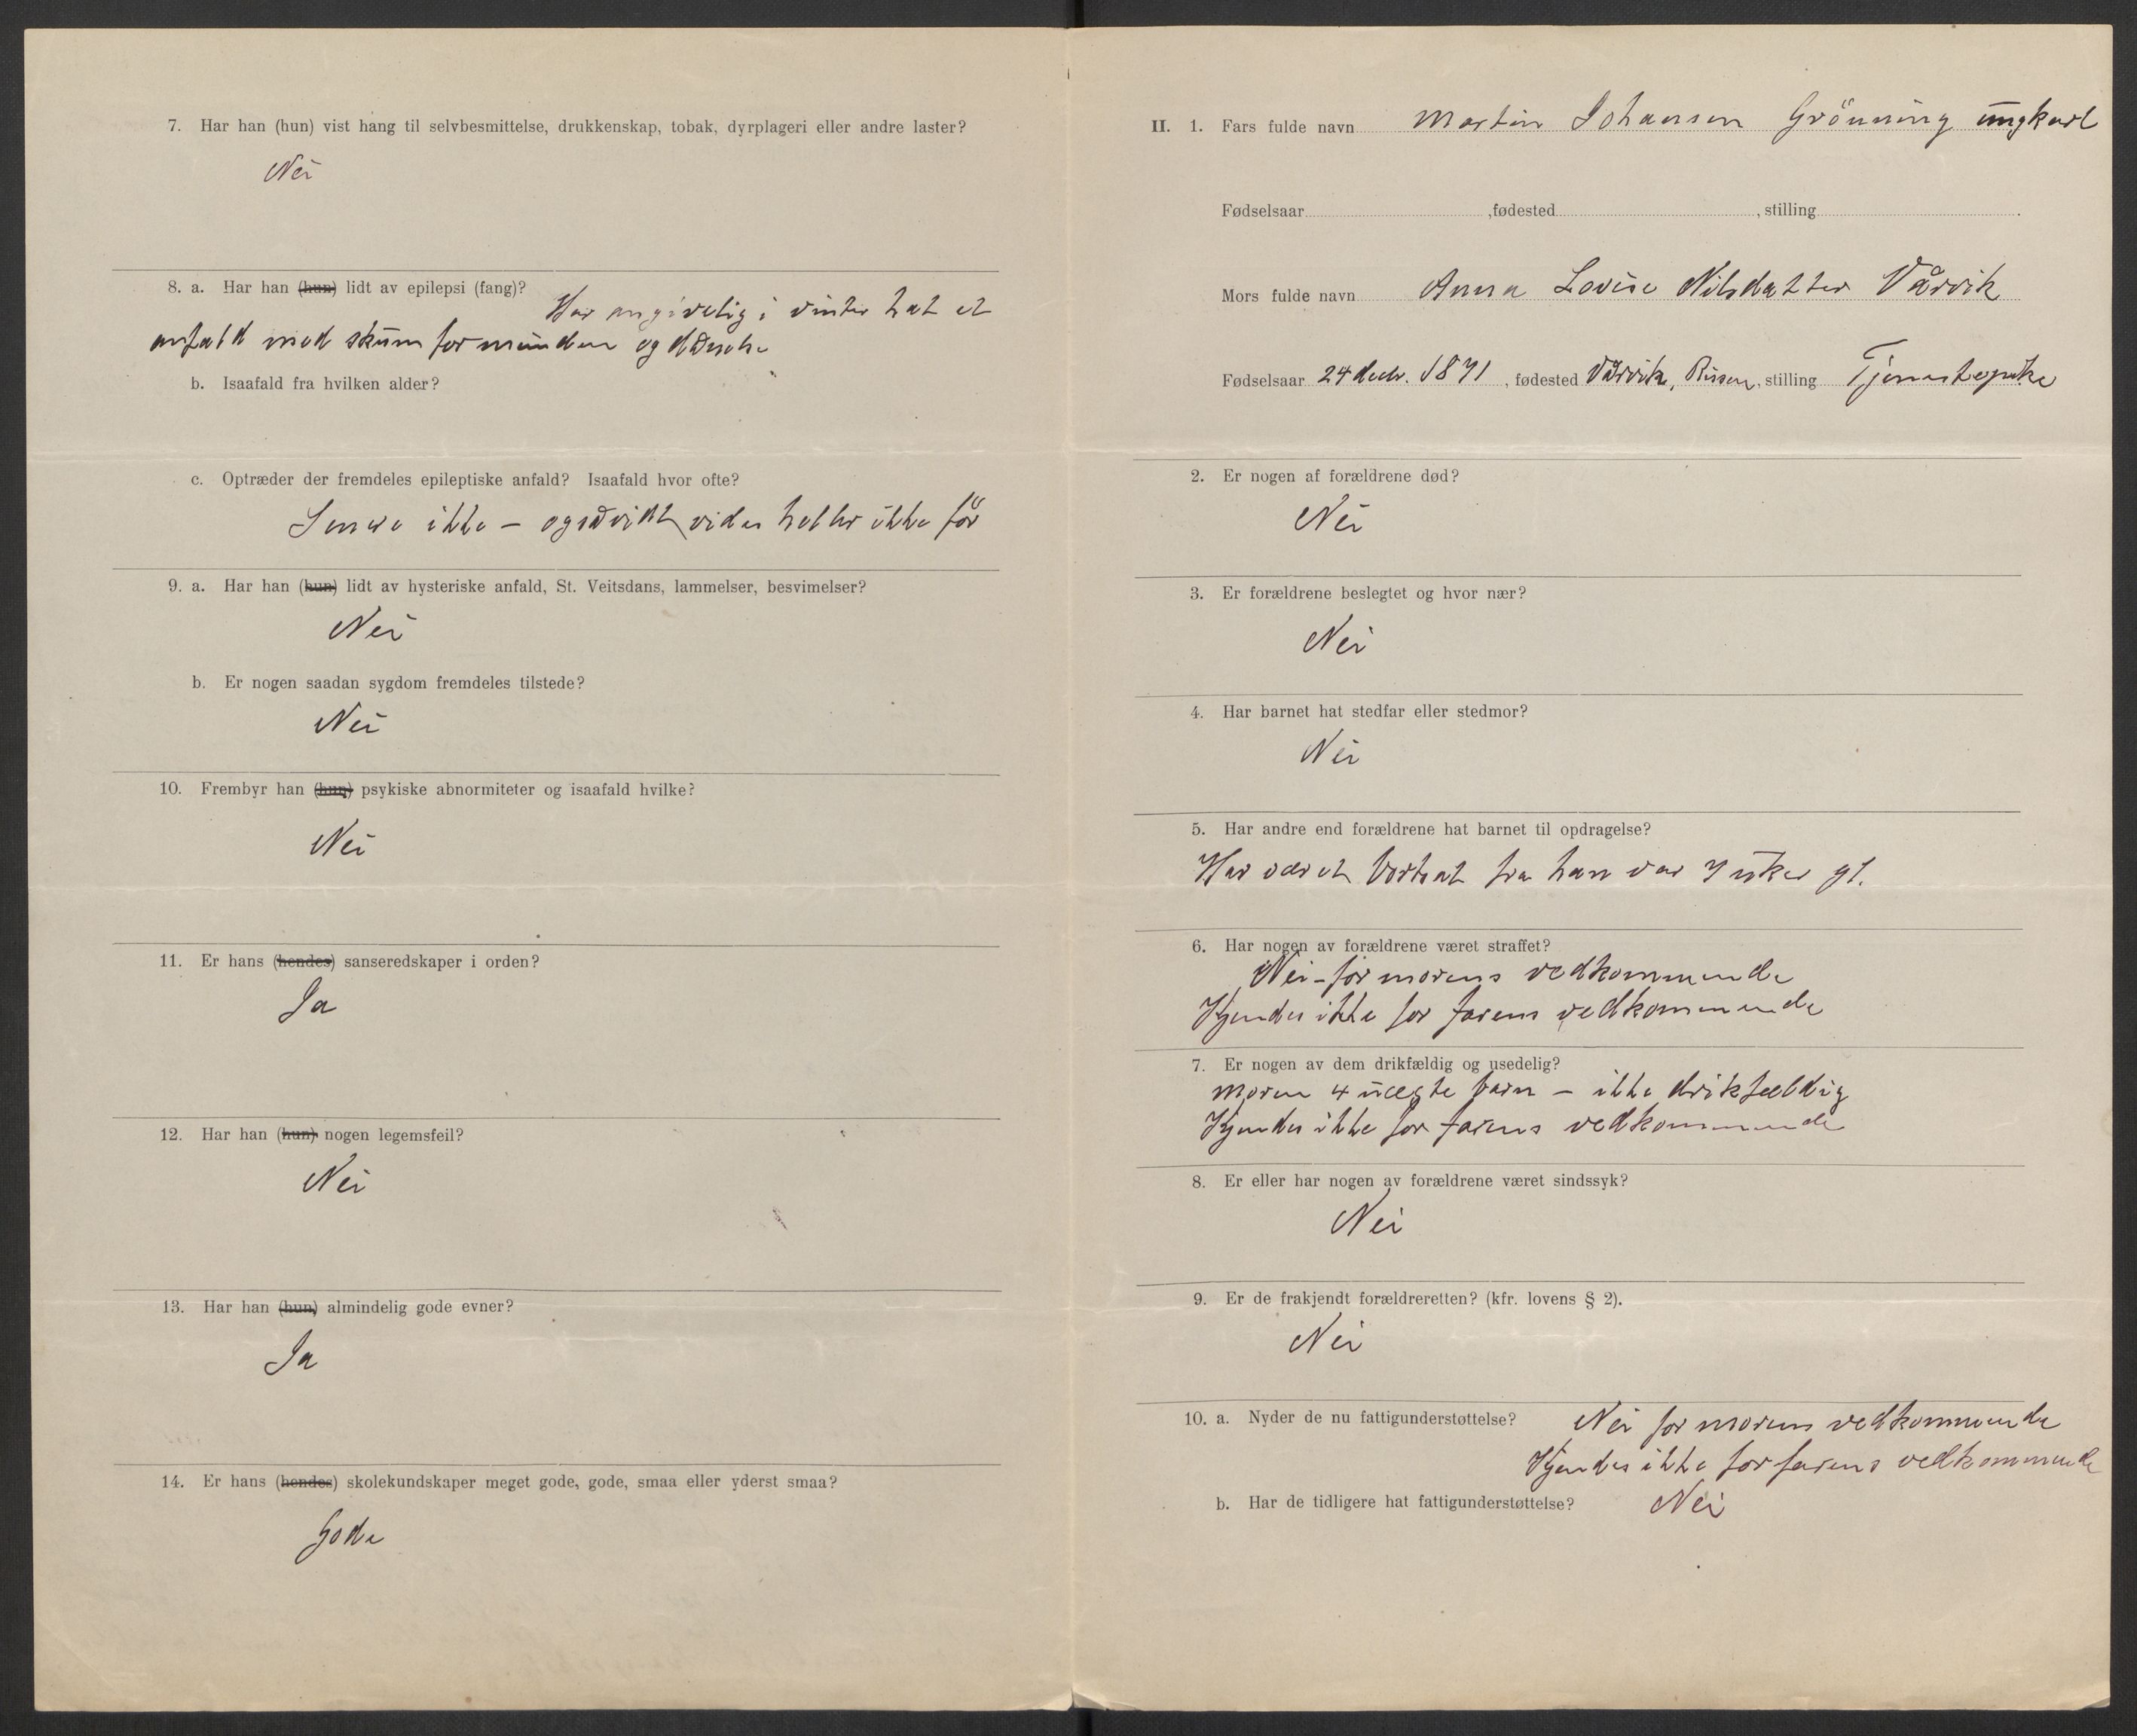 7. Har han (hun) vist hang til selvbesmittelse, drukkenskap, tobak, dyrplageri eller andre laster?
Nei
8. a. Har han (hun) lidt av epilepsi (fang)?
Har angivelig i vinter hat et
anfald med skum for munden og
b. Isaafald fra hvilken alder?
c. Optræder der fremdeles epileptiske anfald? Isaafald hvor ofte?
Senere ikke – ogsåvidt vides heller ikke før
9. a. Har han (hun) lidt av hysteriske anfald, St. Veitsdans, lammelser, besvimelser?
Nei
b. Er nogen saadan sygdom fremdeles tilstede?
Nei
10. Frembyr han (hun) psykiske abnormiteter og isaafald hvilke?
Nei
11. Er hans (hendes) sanseredskaper i orden?
Ja
12. Har han (hun) nogen legemsfeil?
Nei
13. Har han (hun) almindelig gode evner?
Ja
14. Er hans (hendes) skolekundskaper meget gode, gode, smaa eller yderst smaa?
Gode
II. 1. Fars fulde navn Martin Johansen Grönning ungkarl
Fødselsaar , fødested , stilling .
Mors fulde navn Anna Lovise Nilsdatter Vårvik
Fødselsaar 24 decbr. 1871 , fødested Vårvik, Rissen, stilling Tjenestepike
2. Er nogen af forældrene død?
Nei
3. Er forældrene beslegtet og hvor nær?
Nei
4. Har barnet hat stedfar eller stedmor?
Nei
5. Har andre end forældrene hat barnet til opdragelse?
Har været bortsat fra han var 7 uker gl.
6. Har nogen av forældrene været straffet?
Nei – for morens vedkommende
Kjendes ikke for farens vedkommende
7. Er nogen av dem drikfældig og usedelig?
Moren 4 uægte barn – ikke drikfældig
Kjendes ikke for farens vedkommende
8. Er eller har nogen av forældrene været sindssyk?
Nei
9. Er de frakjendt forældreretten? (kfr. lovens § 2).
Nei
10. a. Nyder de nu fattigunderstøttelse? Nei for morens vedkommende
Kjendes ikke for farens vedkommende
b. Har de tidligere hat fattigunderstøttelse? Nei